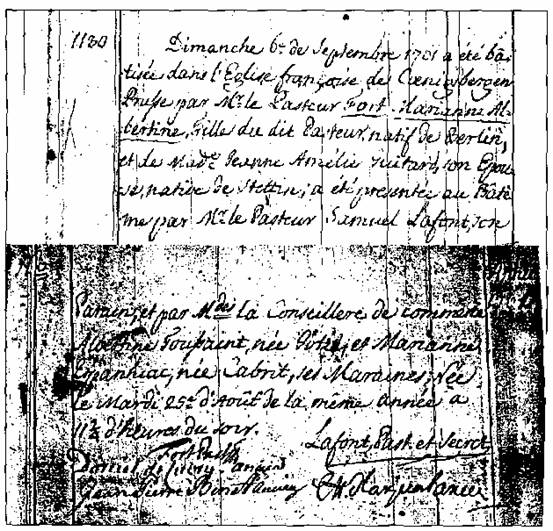 1130
Dimanche 6e de Septembre 1701 a été bâ-
tisée dans l'Eglise françoise de Cœnigsberg en
Prusse par Mr. le Pasteur Fort, Marianne Al-
bertine, Fille du dit Pasteur, natif de Berlin,
et de Made. Jeanne Amélie son Epou-
se, native de Stettin; a été presentée au Batê-
me par Mr. le Pasteur Samuel Lafont, son
Parain, et par Mdes la Conseillere de commerce
Albertine Toussaint, née et Marianne
née Cabrit, ses Maraines; Née
le Mardi 25e d'Août de la même année a
11½ d'heures du soir.
Lafont, Past. et Secret.
Fort Past.
Daniel Ancien
Jean Pierre